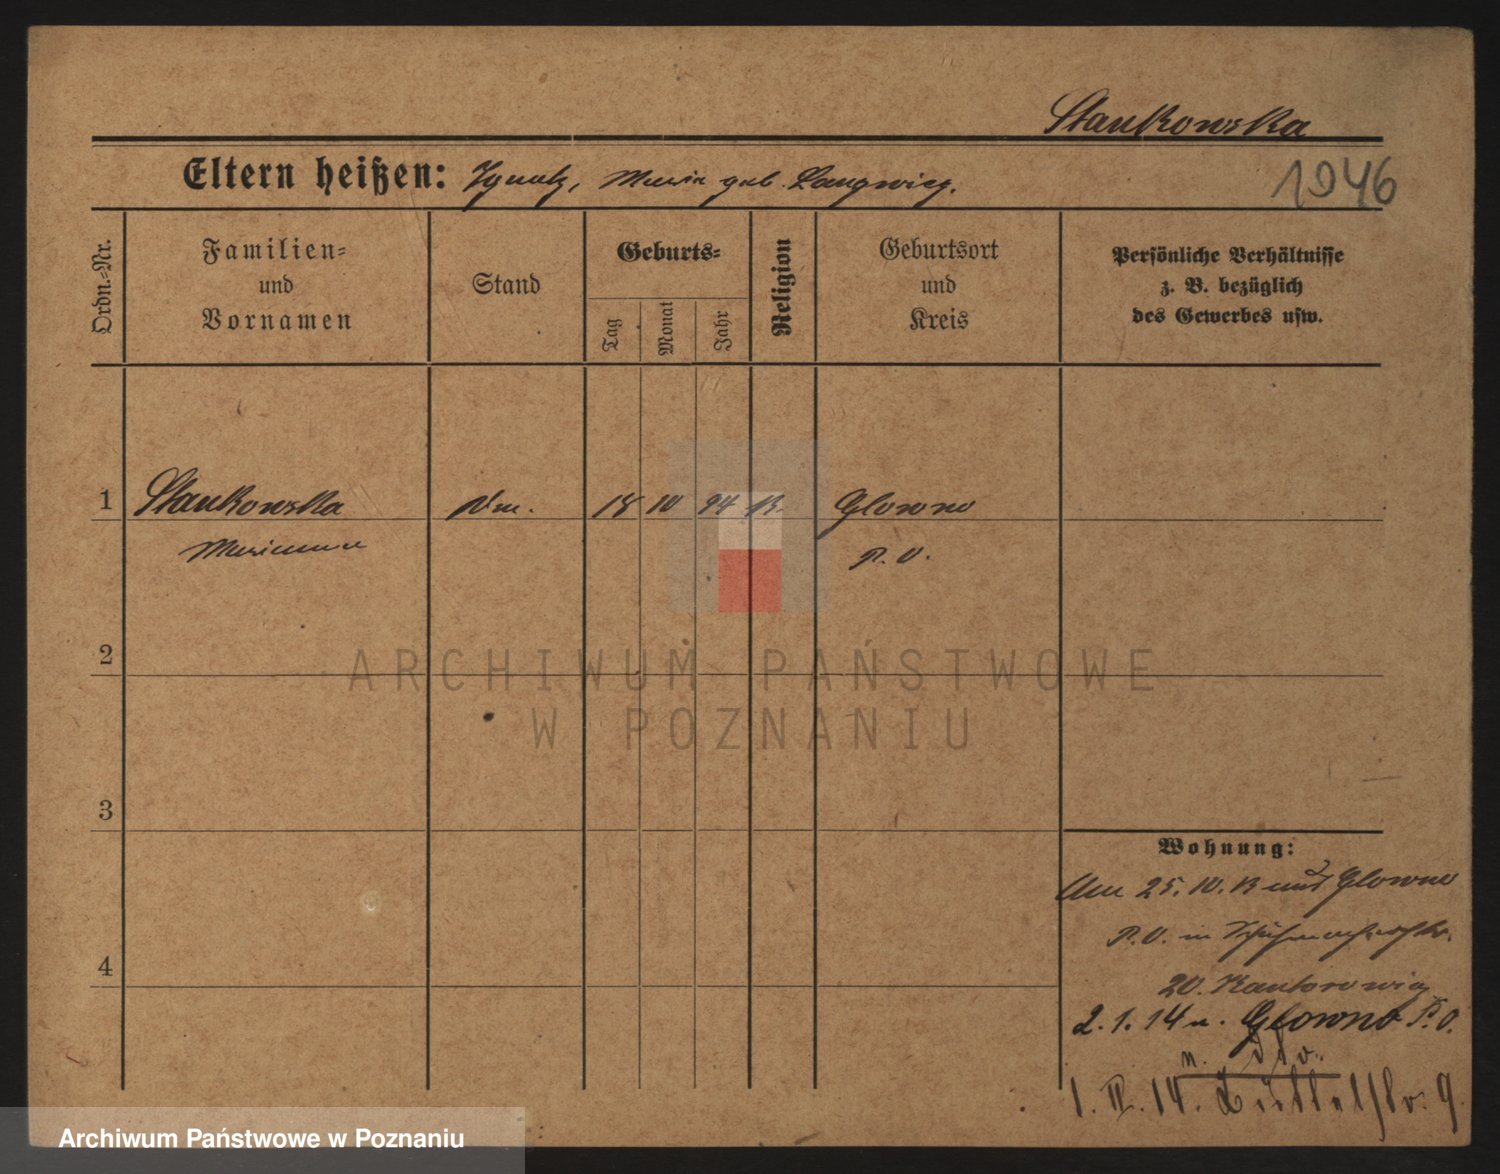 Stankowska
Eltern heißen: Ignatz, Maria geb. Langwicz.
1946
Ordn.-Nr.
Familien-
und
Vornamen
Stand
Geburts-
Tag
Monat
Jahr
Religion
Geburtsort
und
Kreis
Persönliche Verhältnisse
z. B. bezüglich
des Gewerbes usw.
1 Stankowska 18 10 94 K. Glowno
Marianna P. O.
2
3
4
Wohnung:
Am 25. 10. 13 aus Glowno
P. O. in
20. Kantorowicz
2. 1. 14 n. Glowno P. O.
n.
1. IV. 14. 9
ARCHIWUM PAŃSTWOWE
W POZNANIU
Archiwum Państwowe w Poznaniu